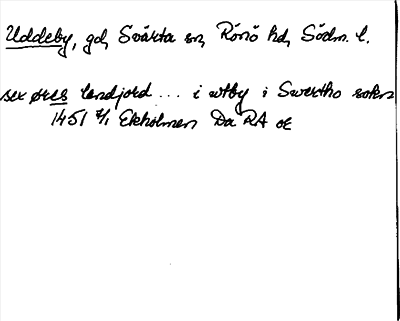 Uddeby, gd, Svärta sn, Rönö hd, Södm. l.
sex øres landjord ... i utby i Swertho sokn
1451 8/1 Ekholmen Da RA oc